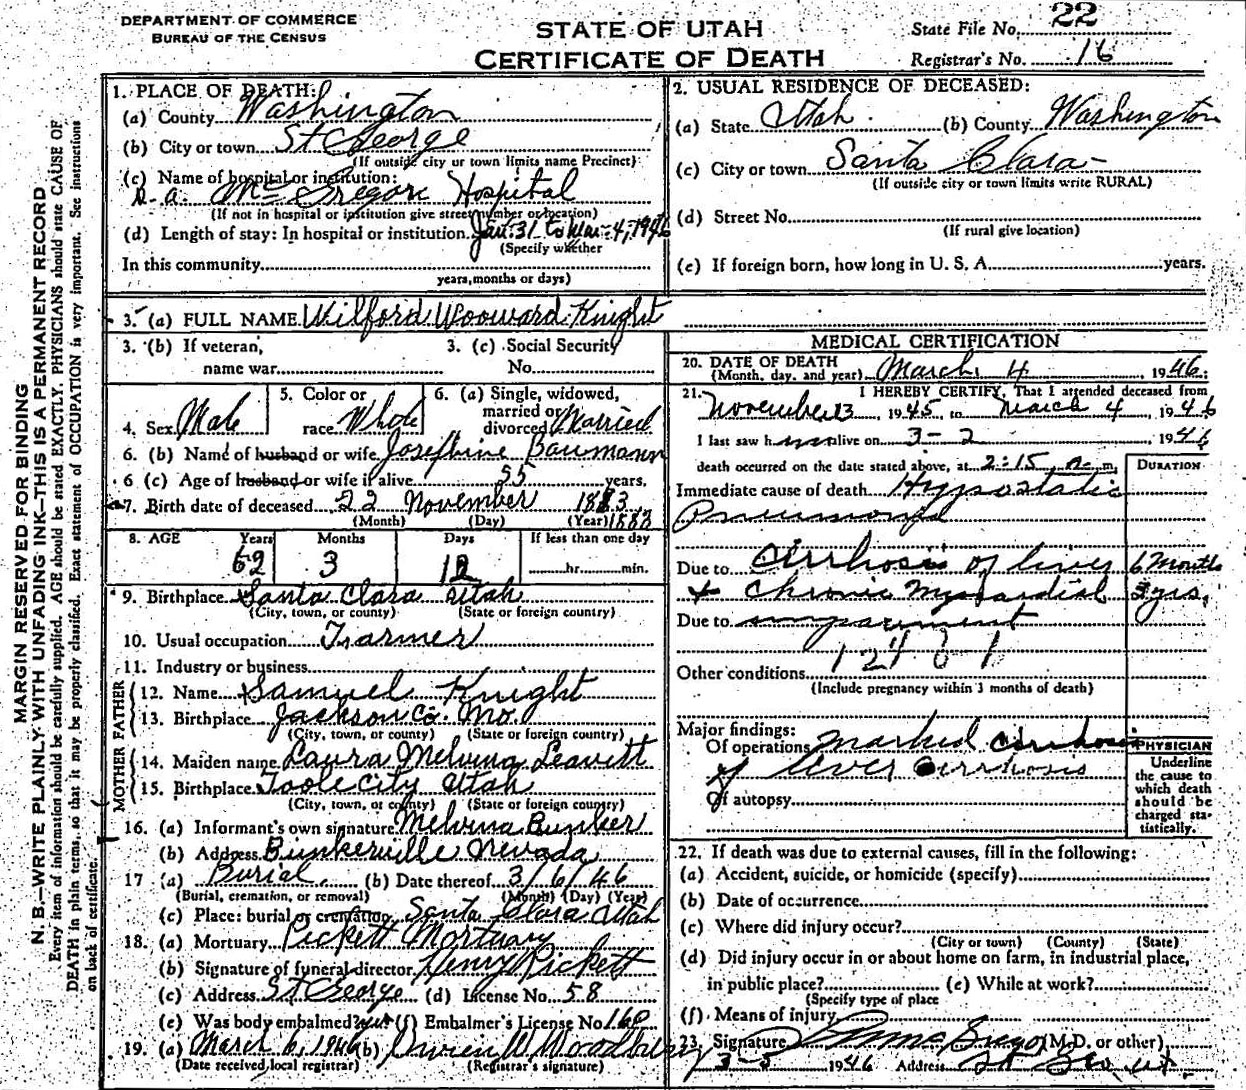 DEPARTMENT OF COMMERCE
BUREAU OF THE CENSUS
STATE OF UTAH
CERTIFICATE OF DEATH
State File No. 22
Registrar's No. 16
MARGIN RESERVED FOR BINDING
N. B.—WRITE PLAINLY WITH UNFADING INK—THIS IS A PERMANENT RECORD
Every item of information should be carefully supplied. AGE should be stated EXACTLY. PHYSICIANS should state CAUSE OF
DEATH in plain terms, so that it may be properly classified. Exact statement of OCCUPATION is very important. See instructions
on back of certificate.
1. PLACE OF DEATH:
(a) County Washington
(b) City or town St George
(If outside city or town limits name Precinct)
(c) Name of hospital or institution:
D. a. McGregor Hospital
(If not in hospital or institution give street number or location)
(d) Length of stay: In hospital or institution Jan. 31 to Mar. 4, 1946
(Specify whether
In this community
years, months or days)
2. USUAL RESIDENCE OF DECEASED:
(a) State Utah (b) County Washington
(c) City or town Santa Clara
(If outside city or town limits write RURAL)
(d) Street No.
(If rural give location)
(e) If foreign born, how long in U. S. A. years.
3. (a) FULL NAME Wilford Wooward Knight
3. (b) If veteran, name war
3. (c) Social Security No.
4. Sex Male
5. Color or race White
6. (a) Single, widowed, married or divorced Married
6. (b) Name of husband or wife Josephine Baumann
6 (c) Age of husband or wife if alive 55 years,
7. Birth date of deceased 22 November 1883
(Month) (Day) (Year) 1883
8. AGE Years Months Days If less than one day
62 3 12 hr. min.
9. Birthplace Santa Clara Utah
(City, town, or county) (State or foreign country)
10. Usual occupation Farmer
11. Industry or business
FATHER
12. Name Samuel Knight
13. Birthplace Jackson Co. Mo.
(City, town, or county) (State or foreign country)
MOTHER
14. Maiden name Laura Melvina Leavitt
15. Birthplace Toole City Utah
(City, town, or county) (State or foreign country)
16. (a) Informant's own signature Melvina Bunker
(b) Address Bunkerville Nevada
17 (a) Burial (b) Date thereof 3/6/46
(Burial, cremation, or removal) (Month) (Day) (Year)
(c) Place: burial or cremation Santa Clara Utah
18. (a) Mortuary Pickett Mortuary
(b) Signature of funeral director Henry Pickett
(c) Address St George (d) License No. 58
(e) Was body embalmed? yes (f) Embalmer's License No. 160
19. (a) March 6, 1946 (b) Owen W Woodbury
(Date received local registrar) (Registrar's signature)
MEDICAL CERTIFICATION
20. DATE OF DEATH
(Month, day, and year) March 4 1946;
21. I HEREBY CERTIFY, That I attended deceased from
November 23 1945, to March 4, 1946
I last saw him alive on 3-2 1946
death occurred on the date stated above, at 2:15 a m. DURATION
Immediate cause of death Hypostatic
Pneumonia
Due to cirrhosis of liver 6 months
+ Chronic Myocardial 3 yrs.
Due to impairment
Other conditions
(Include pregnancy within 3 months of death)
Major findings:
Of operations marked cirrhosis
of liver cirrhosis
Of autopsy
PHYSICIAN
Underline
the cause to
which death
should be
charged sta-
tistically.
22. If death was due to external causes, fill in the following:
(a) Accident, suicide, or homicide (specify)
(b) Date of occurrence
(c) Where did injury occur?
(City or town) (County) (State)
(d) Did injury occur in or about home on farm, in industrial place,
in public place? (e) While at work?
(Specify type of place
(f) Means of injury
23. Signature McGregor (M.D. or other)
3-5 1946 Address St Geo Ut